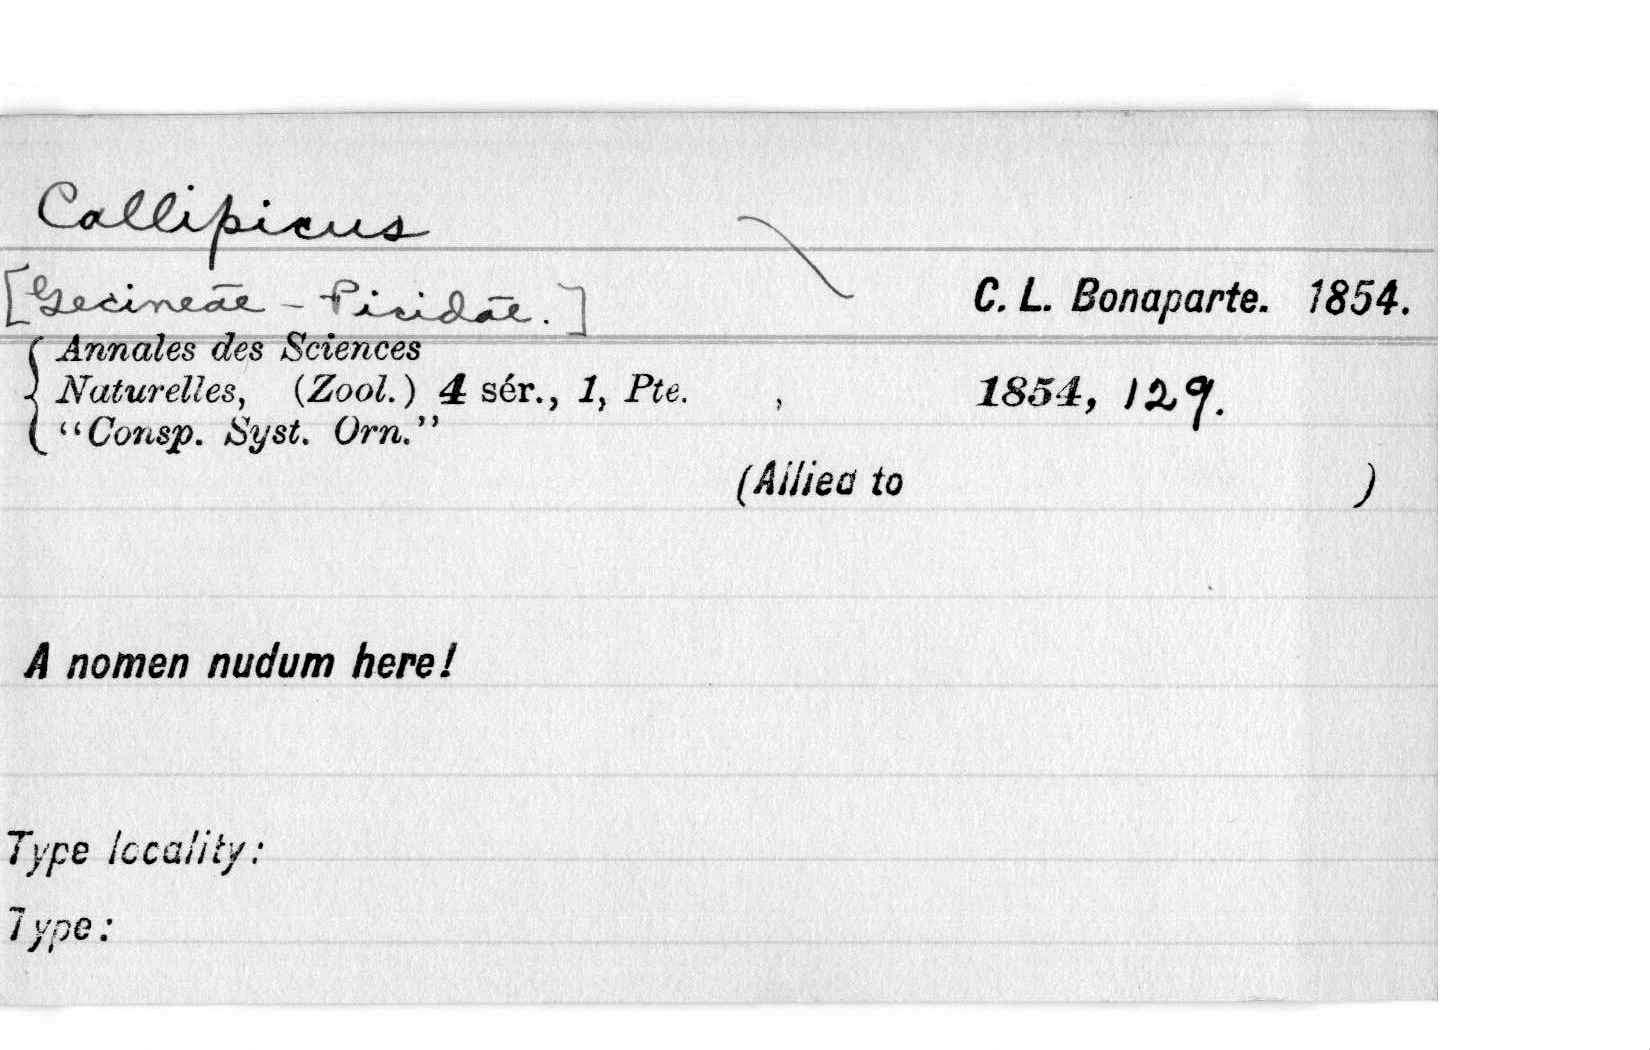 Callipicus
[Gecineae - Picidae.] C. L. Bonaparte. 1854.
Annales des Sciences
Naturelles, (Zool.) 4 sér., 1, Pte. , 1854, 129.
"Consp. Syst. Orn."
(Allied to )
A nomen nudum here!
Type locality:
Type: